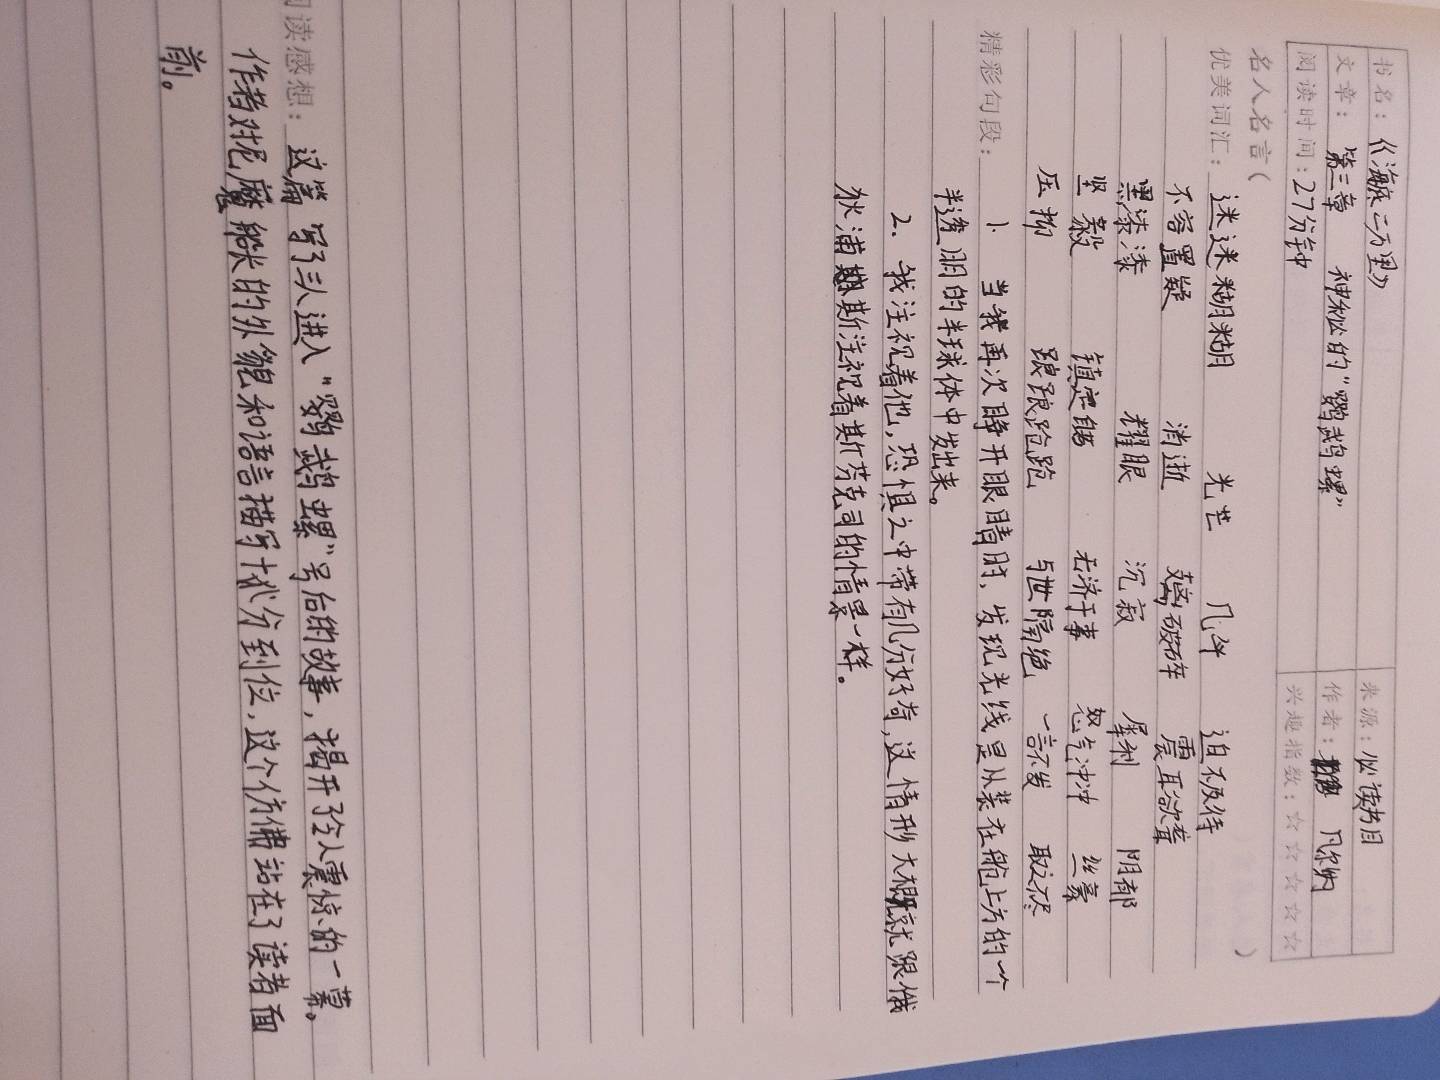 书名：《海底二万里》 来源：必读书目
文章：第三章 神秘的“鹦鹉螺” 作者： 凡尔纳
阅读时间：27分钟 兴趣指数：☆☆☆☆☆
名人名言（ ）
优美词汇：迷迷糊糊 光芒 几乎 迫不及待
不容置疑 消逝 破碎 震耳欲聋
黑漆漆 耀眼 沉寂 犀利 阴郁
坚毅 镇定 无济于事 怒气冲冲
压抑 踉踉跄跄 与世隔绝 一言不发
精彩句段： 1. 当我再次睁开眼睛时，发现光线是从装在舱上方的一个
半透明的半球体中发出来。
2. 我注视着他，恐惧之中带有几分好奇，这情形大概就跟俄
狄浦斯注视着斯芬克司的情景一样。
阅读感想：这篇写了三人进入“鹦鹉螺”号后的故事，揭开了令人震惊的一幕。
作者对尼摩船长的外貌和语言描写十分到位，这个仿佛站在了读者面
前。